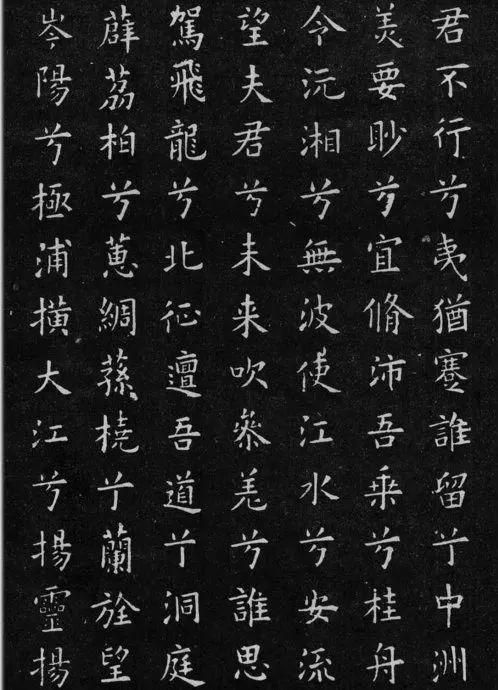 君不行兮夷猶蹇誰留兮中洲
美要眇兮宜脩沛吾乗兮桂舟
令沅湘兮無波使江水兮安流
望夫君兮未来吹參差兮誰思
駕飛龍兮北征邅吾道兮洞庭
薜荔柏兮蕙綢蓀橈兮蘭旌望
岑陽兮極浦橫大江兮揚靈揚